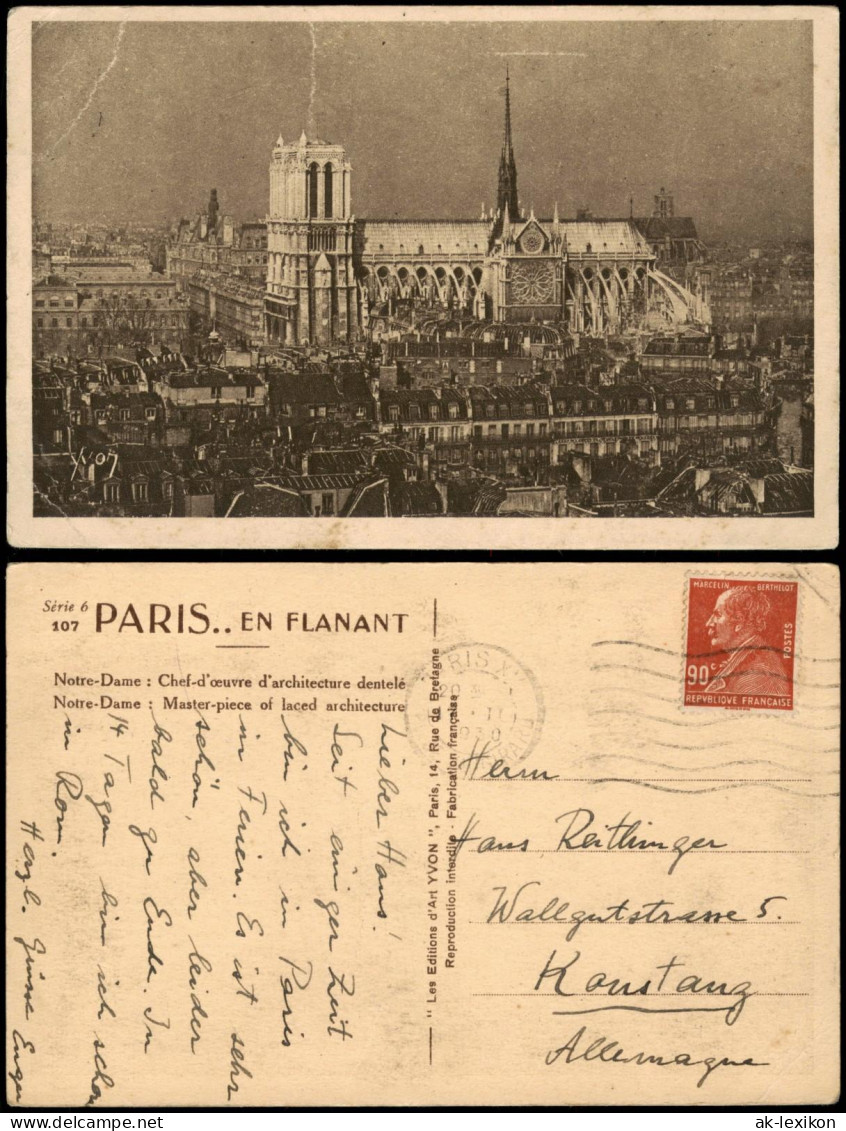 YVON
Série 6
107 PARIS.. EN FLANANT
Notre-Dame : Chef-d'œuvre d'architecture dentelé
Notre-Dame : Master-piece of laced architecture
Lieber Hans!
Seit einiger Zeit
bin ich in Paris
in Ferien. Es ist sehr
schön, aber leider
bald zu Ende. In
14 Tagen bin ich schon
in Rom.
Herzl. Grüsse
" Les Editions d'Art YVON ", Paris, 14, Rue de Bretagne
Reproduction interdite - Fabrication française
PARIS X
MARCELIN BERTHELOT
90 c
POSTES
REPUBLIQUE FRANÇAISE
Herrn
Hans Reitlinger
Wallgutstrasse 5.
Konstanz
Allemagne
ak-lexikon